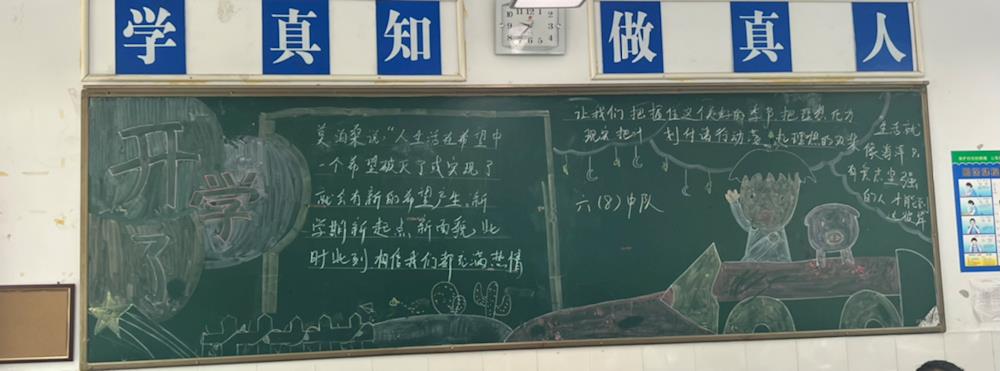 学真知 做真人
开学了
莫泊桑说“人生活在希望中
一个希望破灭了或实现了
就会有新的希望产生，新
学期新起点新面貌，此
时此刻相信我们都充满热情
让我们把握住这个美好的季节把理想化为
现实把计划付诸行动
六（8）中队
生活就
像海洋只
有意志坚强
的人才能到
达彼岸